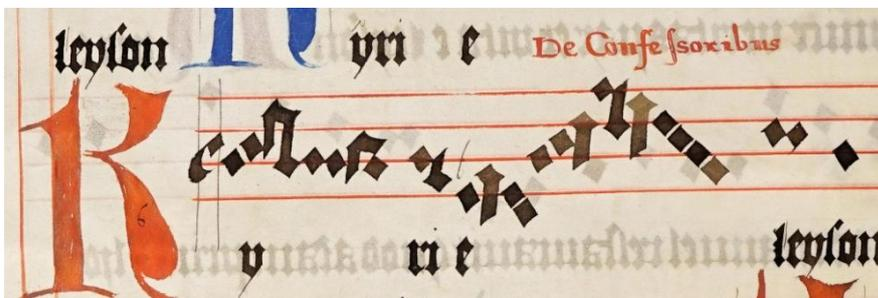 leyson Kyri e De Confessoribus
Ky ri e leyson